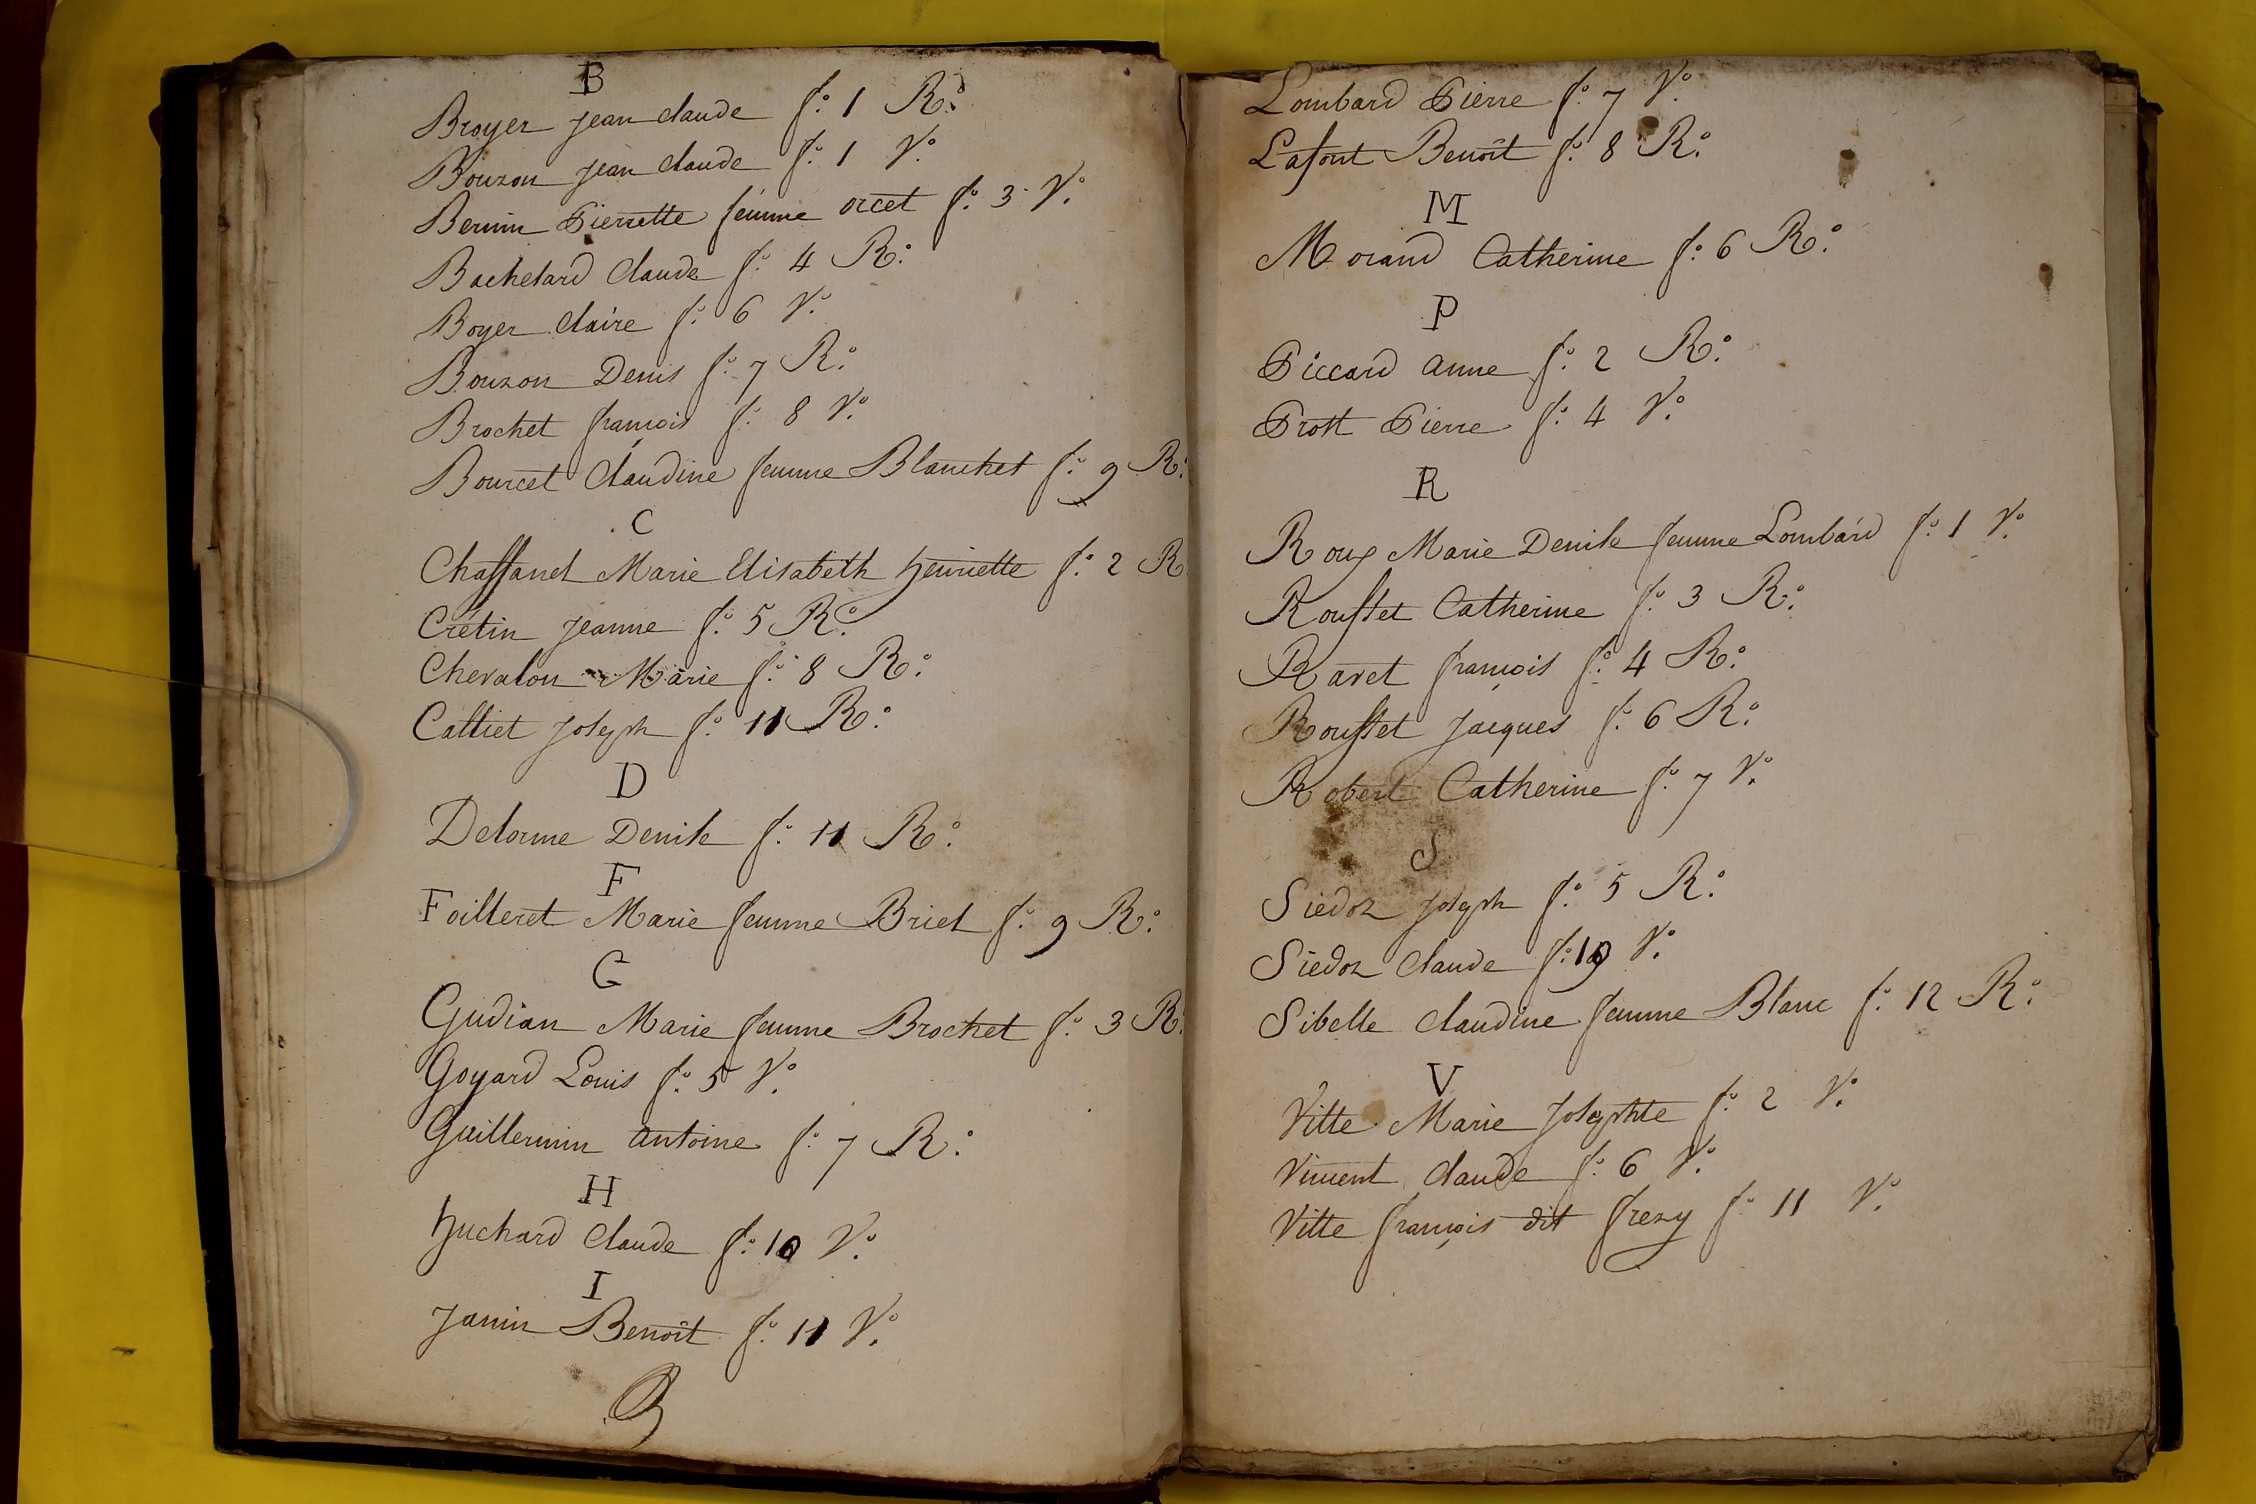 B
Broyer jean claude f.º 1 R.º
Bouzon jean claude f.º 1 V.º
Bernin Pierrette femme orcet f.º 3 V.º
Bachelard Claude f.º 4 R.º
Boyer Claire f.º 6 V.º
Bouzon Denis f.º 7 R.º
Brochet françois f.º 8 V.º
Bourcet Claudine femme Blanchet f.º 9 R.º
C
Chassanel Marie Elisabeth henriette f.º 2 R
Crétin jeanne f.º 5 R.º
Chevalon Marie f.º 8 R.º
Calliet joseph f.º 11 R.º
D
Delorme Denise f.º 11 R.º
F
Foilleret Marie femme Briel f.º 9 R.º
G
Gudian Marie femme Brochet f.º 3 R.
Goyard Louis f.º 5 V.º
Guillermin antoine f.º 7 R.º
H
huchard Claude f.º 10 V.º
I
Janin Benoît f.º 11 V.º
Lombard Pierre f.º 7 V.º
Lafont Benoît f.º 8 R.º
M
Morand Catherine f.º 6 R.º
P
Piccard anne f.º 2 R.º
Prost Pierre f.º 4 V.º
R
Roux Marie Denise femme Lombard f.º 1 V.º
Rousset Catherine f.º 3 R.º
Ravet françois f.º 4 R.º
Rousset jacques f.º 6 R.º
Robert Catherine f.º 7 V.º
S
Siedoz joseph f.º 5 R.º
Siedoz Claude f.º V.º
Sibelle Claudine femme Blanc f.º 12 R.º
V
Vitte Marie josephte f.º 2 V.º
Vincent Claude f.º 6 V.º
Vitte françois dit frezy f.º 11 V.º